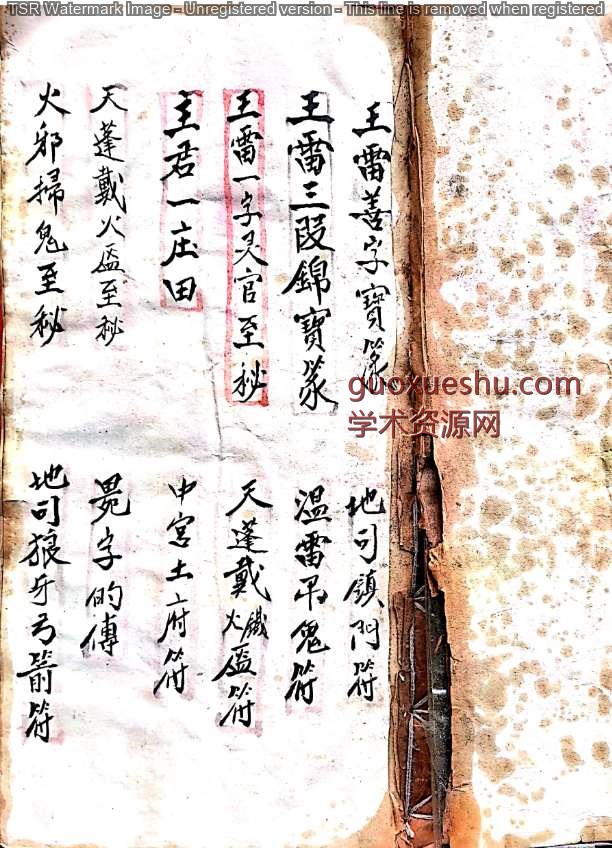 TSR Watermark Image - Unregistered version - This line is removed when registered
王雷善字寶篆
地司鎮門符
王雷三段錦寶篆
溫雷吊鬼符
王雷一字灵官至秘
天蓬戴火鐵盔符
王君一庄田
中宮土府符
天蓬戴火盔至秘
字的傳
火邪掃鬼至秘
地司狼牙弓箭符
guoxueshu.com
学术资源网